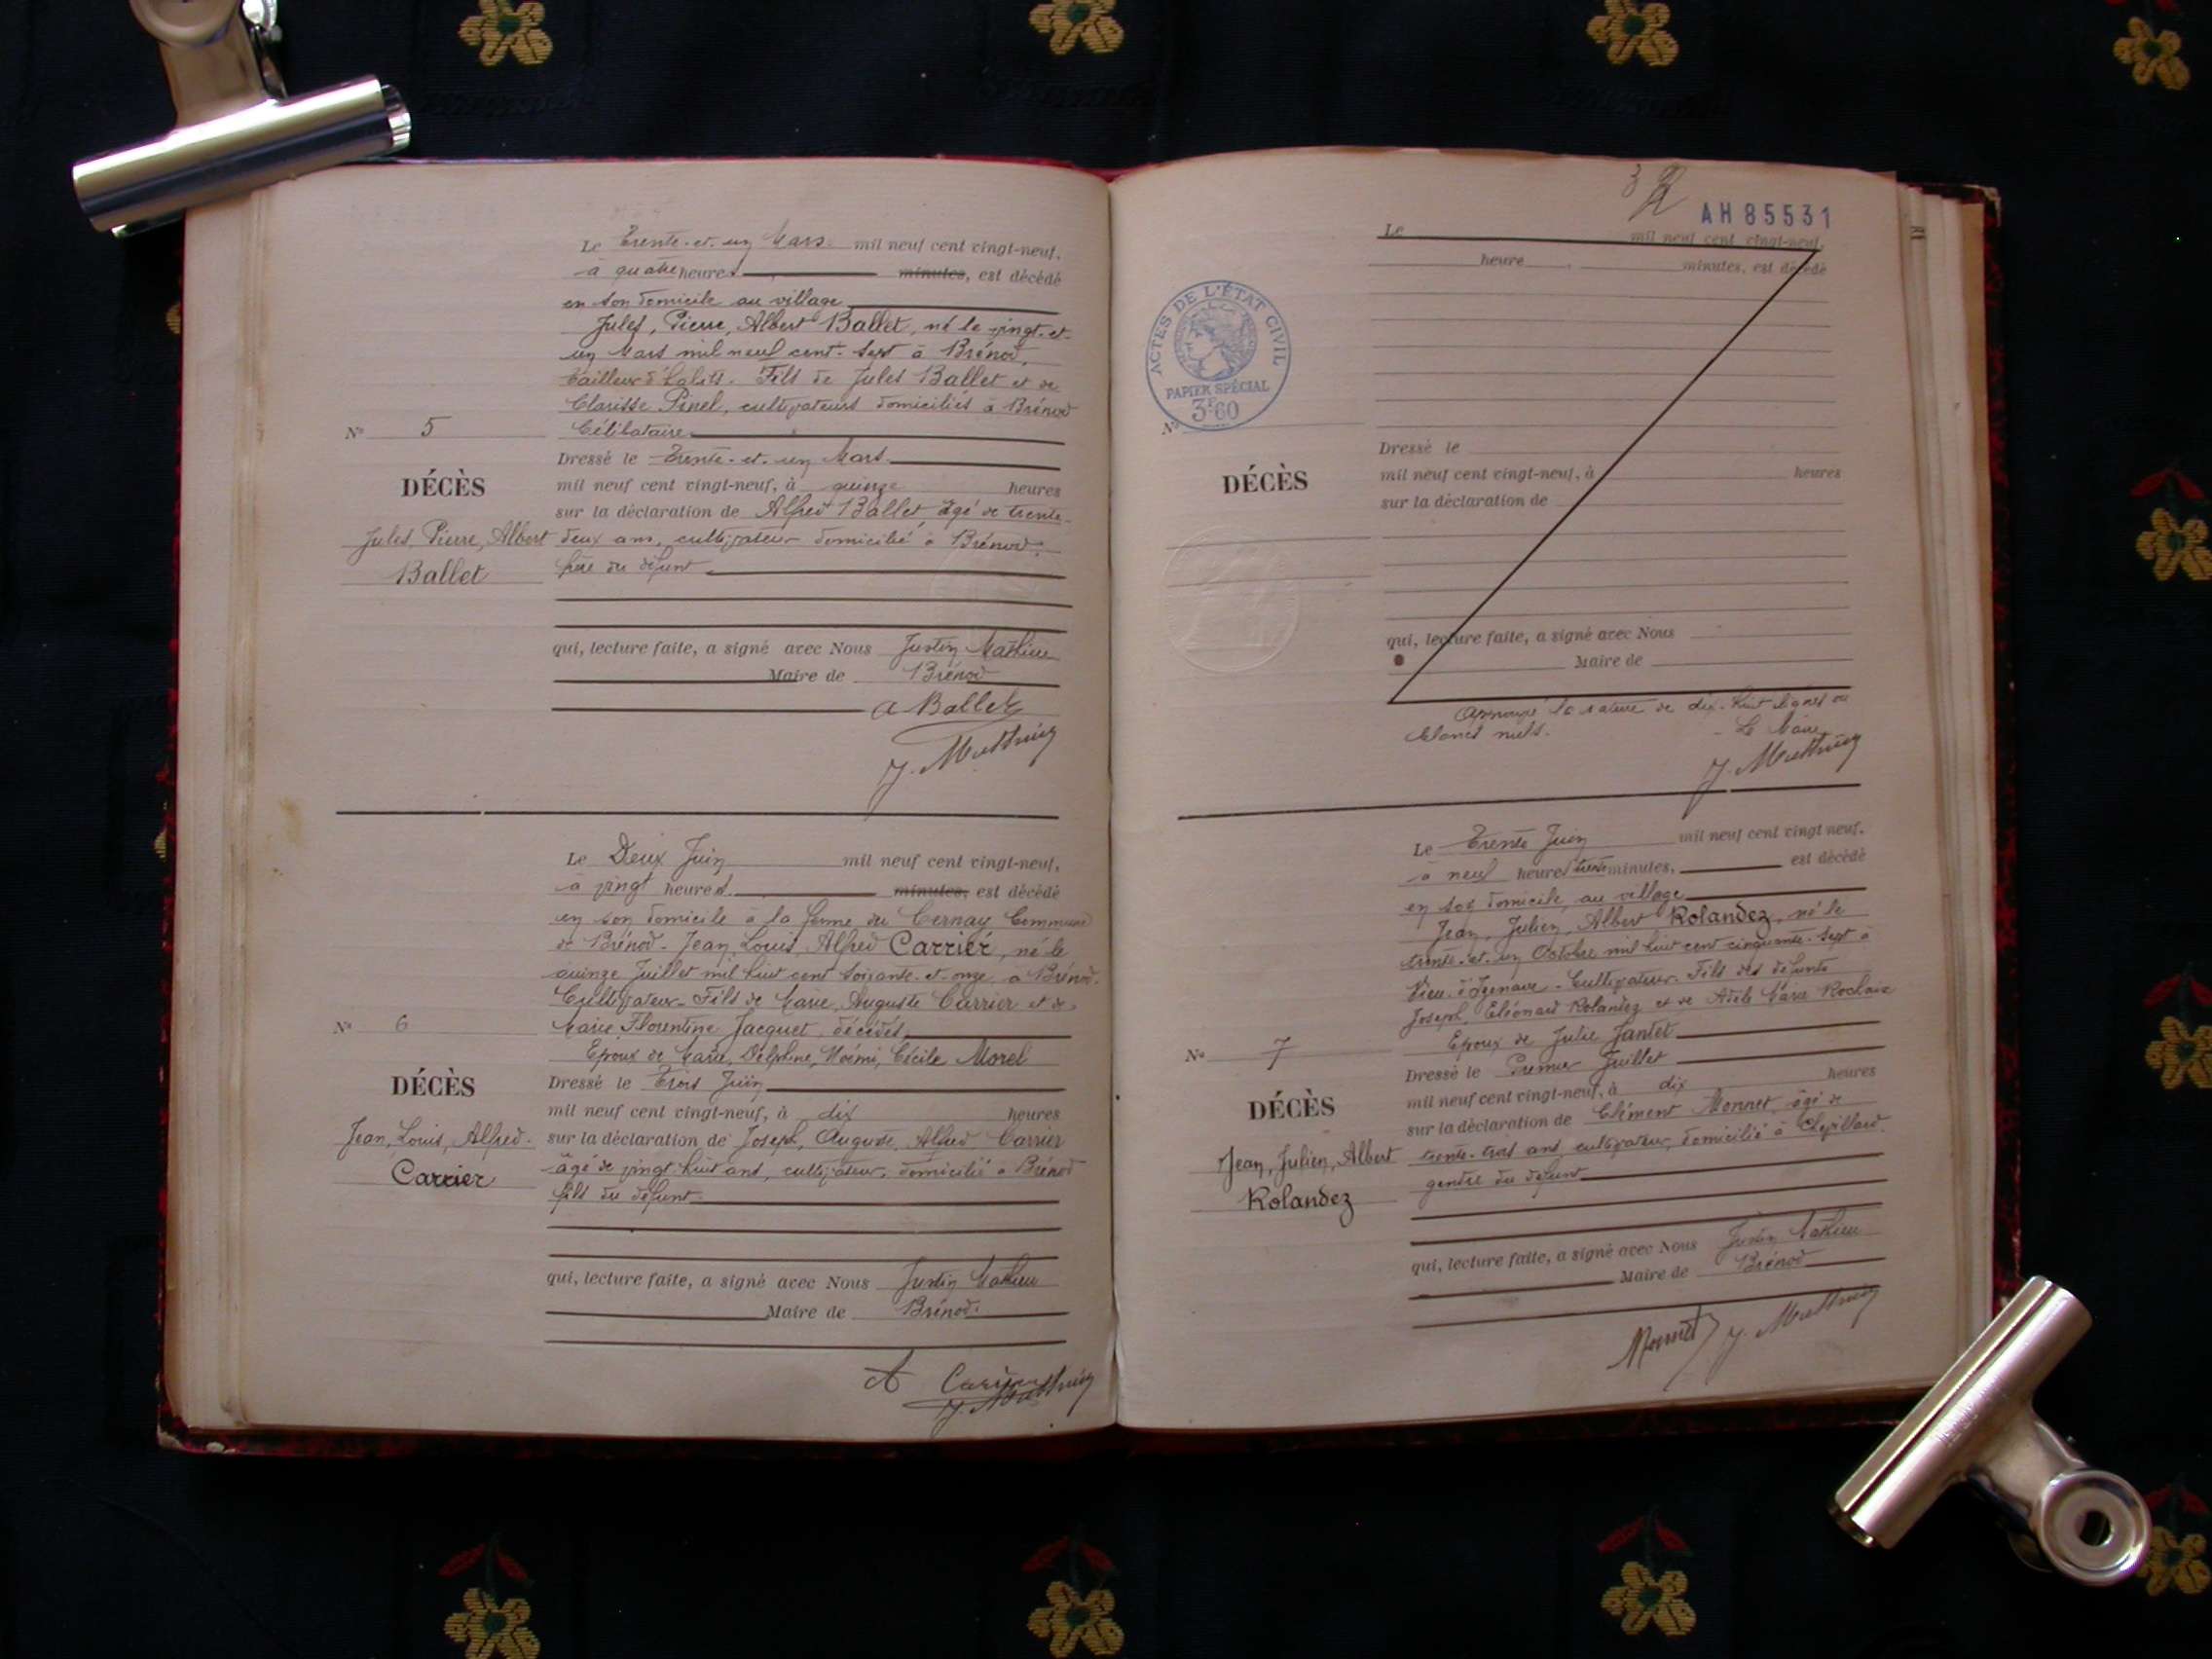 Le Trente-et-un Mars mil neuf cent vingt-neuf,
à quatre heures minutes, est décédé
en son domicile au village
Jules, Pierre, Albert Ballet, né le vingt-et-
un Mars mil neuf cent-sept à Brénod,
tailleur d'habits. Fils de Jules Ballet et de
Clarisse Pinel, cultivateurs domiciliés à Brénod
Célibataire
Nº 5
DÉCÈS
Jules, Pierre, Albert
Ballet
Dressé le Trente-et-un Mars
mil neuf cent vingt-neuf, à quinze heures
sur la déclaration de Alfred Ballet, âgé de trente-
deux ans, cultivateur domicilié à Brénod,
frère du défunt
qui, lecture faite, a signé avec Nous Justin Mathieu
Maire de Brénod
A Ballet
J. Mathieu
Le Deux Juin mil neuf cent vingt-neuf,
à vingt heures minutes, est décédé
en son domicile à la ferme du Cernay Commune
de Brénod - Jean, Louis, Alfred Carrier, né le
quinze Juillet mil huit cent soixante-et-onze à Brénod.
Cultivateur - Fils de Marie, Auguste Carrier et de
Marie Florentine Jacquet, décédés
Epoux de Marie, Delphine, Noémi, Cécile Morel
Nº 6
DÉCÈS
Jean, Louis, Alfred
Carrier
Dressé le Trois Juin
mil neuf cent vingt-neuf, à dix heures
sur la déclaration de Joseph, Auguste, Alfred Carrier
âgé de vingt-huit ans, cultivateur, domicilié à Brénod
fils du défunt
qui, lecture faite, a signé avec Nous Justin Mathieu
Maire de Brénod.
A Carrier
J. Mathieu
3
AH 85531
Le mil neuf cent vingt-neuf,
heure minutes, est décédé
ACTES DE L'ÉTAT CIVIL
PAPIER SPÉCIAL
3F60
Nº
DÉCÈS
Dressé le
mil neuf cent vingt-neuf, à heures
sur la déclaration de
qui, lecture faite, a signé avec Nous
Maire de
Approuvé la rature de dix-huit lignes ou
blancs nuls.
Le Maire
J. Mathieu
Le Trente Juin mil neuf cent vingt neuf,
à neuf heures trente minutes, est décédé
en son domicile, au village
Jean, Julien, Albert Rolandez, né le
trente-et-un Octobre mil huit cent cinquante-sept à
Vieu-d'Izenave - Cultivateur - Fils des défunts
Joseph, Eléonard Rolandez et de Adèle Marie
Epoux de Julie Jantet
Nº 7
DÉCÈS
Jean, Julien, Albert
Rolandez
Dressé le Premier Juillet
mil neuf cent vingt-neuf, à dix heures
sur la déclaration de Clément Monnet, âgé de
trente-trois ans, cultivateur, domicilié à Chevillard,
gendre du défunt
qui, lecture faite, a signé avec Nous Justin Mathieu
Maire de Brénod
Monnet J. Mathieu